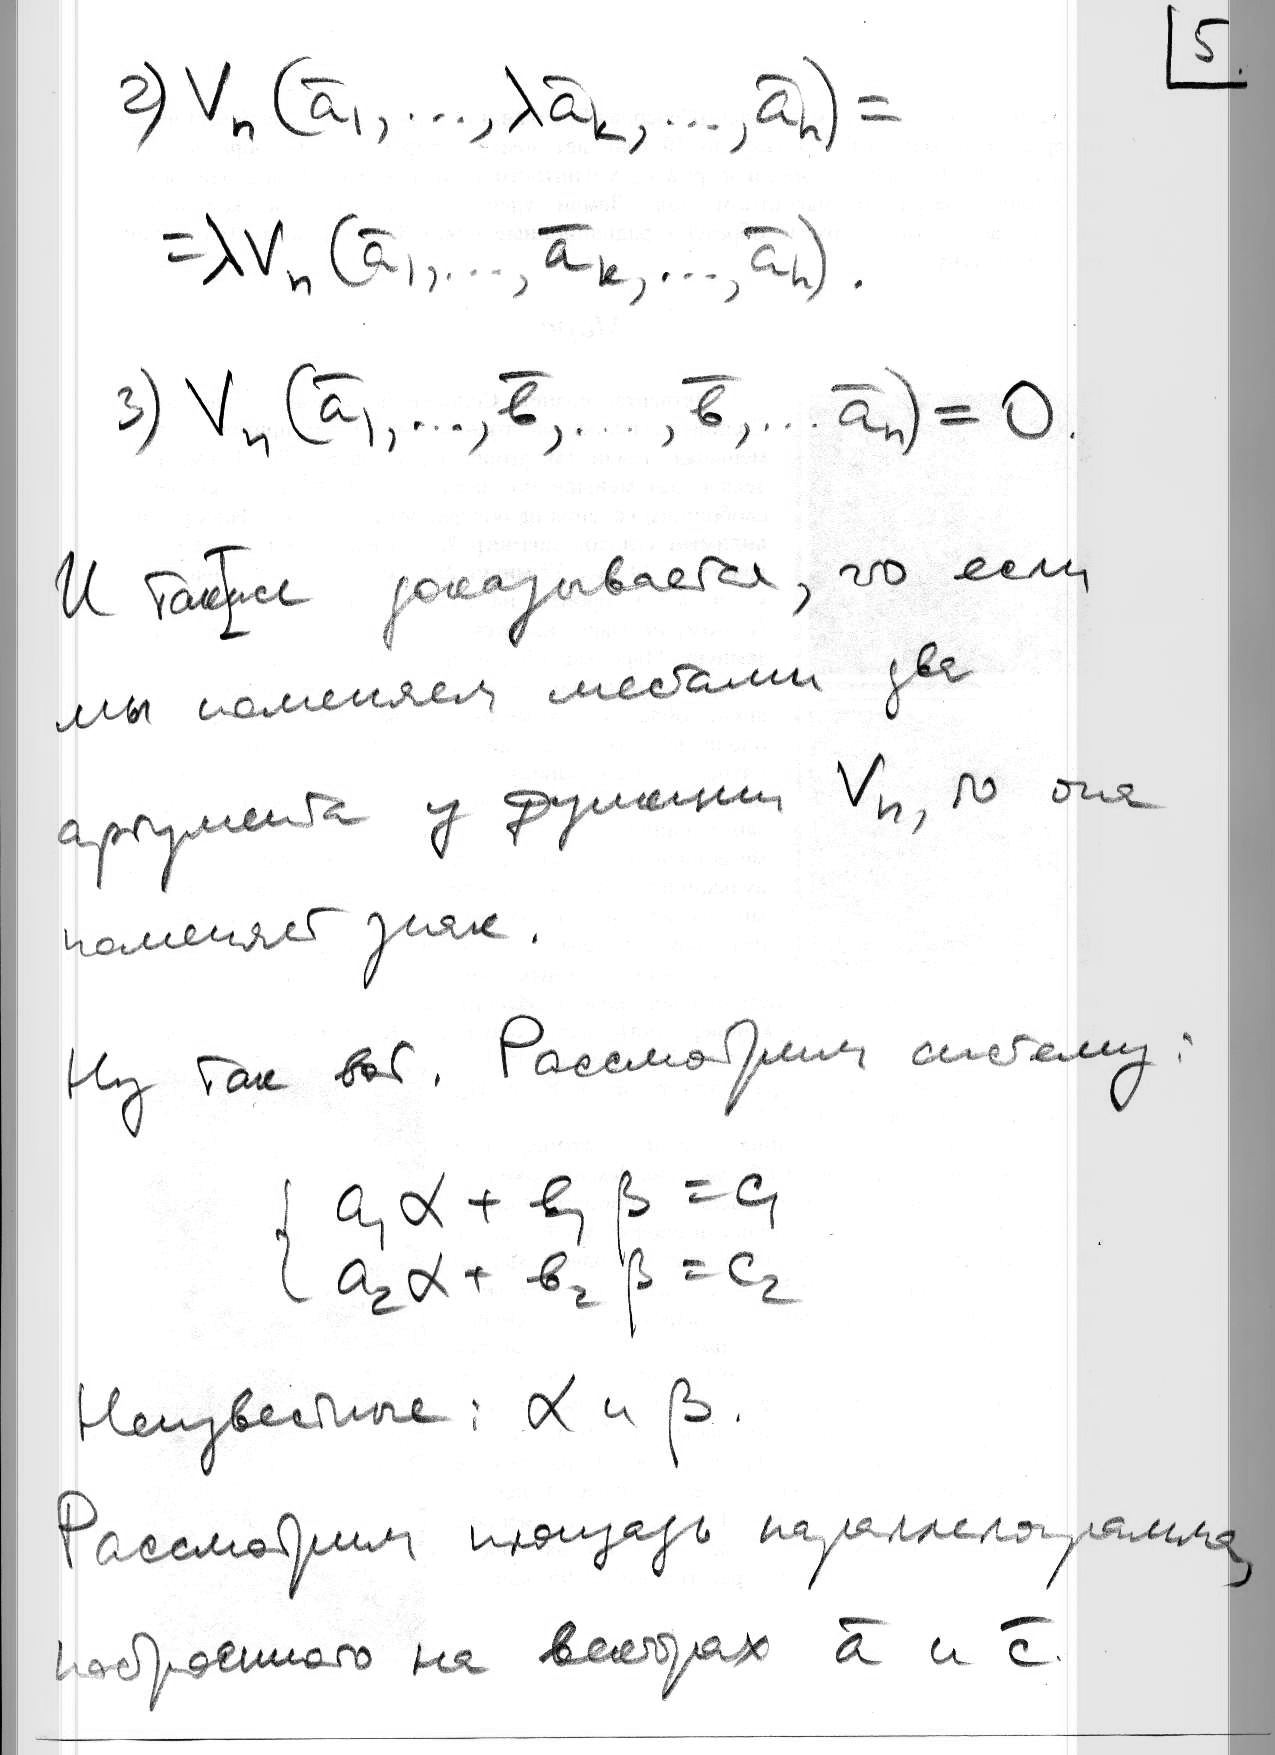 5.
2) Vₙ(a̅₁, ..., λa̅ₖ, ..., a̅ₙ) =
= λVₙ(a̅₁, ..., a̅ₖ, ..., a̅ₙ).
3) Vₙ(a̅₁, ..., в̅, ..., в̅, ... a̅ₙ) = 0.
И также доказывается, что если
мы поменяем местами два
аргумента у функции Vₙ, то она
поменяет знак.
Ну так вот. Рассмотрим систему:
a₁α + в₁β = c₁
a₂α + в₂β = c₂
Неизвестные: α и β.
Рассмотрим площадь параллелограмма,
построенного на векторах a̅ и c̅.